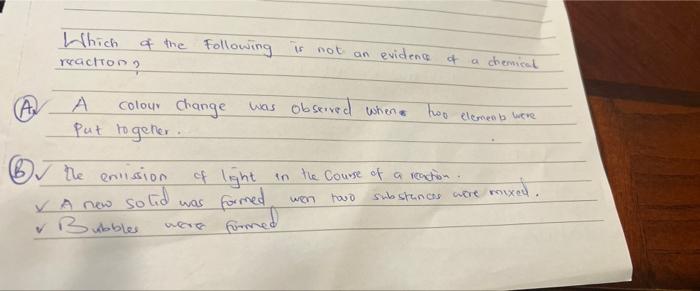 Which of the Following is not an evidence of a chemical
reaction?
A A colour change was observed when two elements were
Put together.
B ✓ The emission of light in the Course of a reaction.
✓ A new solid was formed wen two substances were mixed.
✓ Bubbles were formed